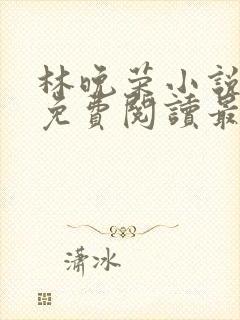 林晚荣小說
免費閱讀最
瀟冰